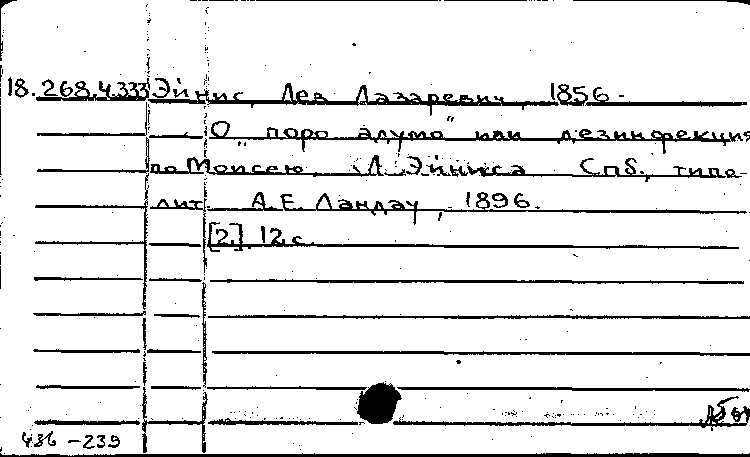 18.268.4.333 Эйнис, Лев Лазаревич, 1856-
О „паро адумо" или дезинфекция
по Моисею. Л. Эйниса Спб., типо-
лит. А.Е. Ландау, 1896.
[2], 12 с.
436-239